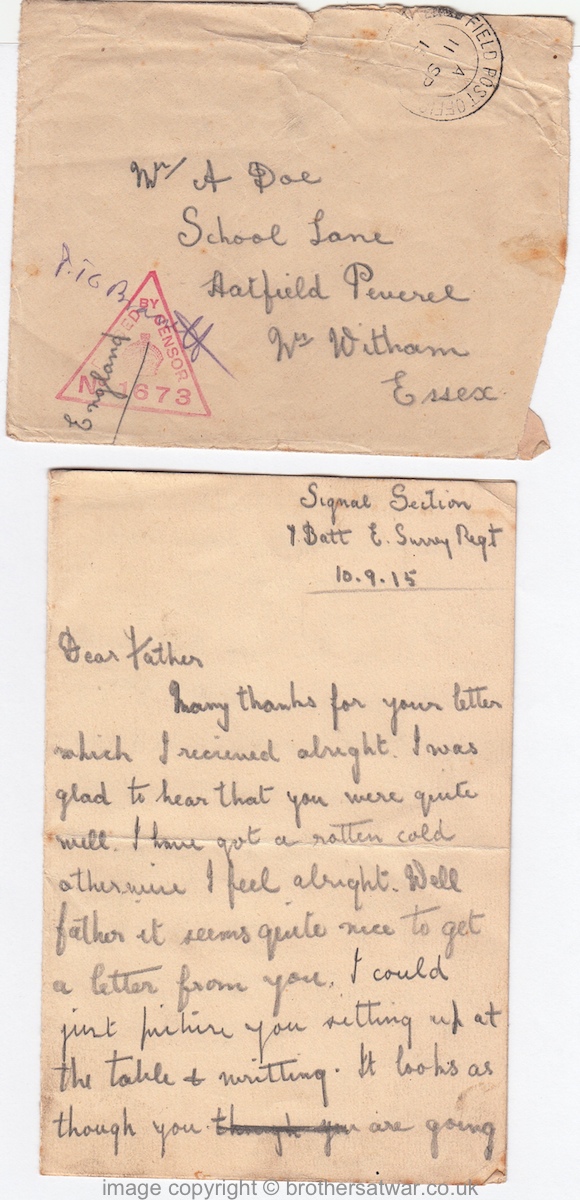 FIELD POST OFFI
A
11 SP
1
Mr A Doe
School Lane
Hatfield Peverel
Nr Witham
Essex
England
BY CENSOR
1673
Signal Section
7 Batt E. Surrey Regt
10.9.15
Dear Father
Many thanks for your letter
which I recieved alright. I was
glad to hear that you were quite
well. I have got a rotten cold
otherwise I feel alright. Well
father it seems quite nice to get
a letter from you. I could
just picture you sitting up at
the table & writting. It looks as
though you though you are going
image copyright © brothersatwar.co.uk